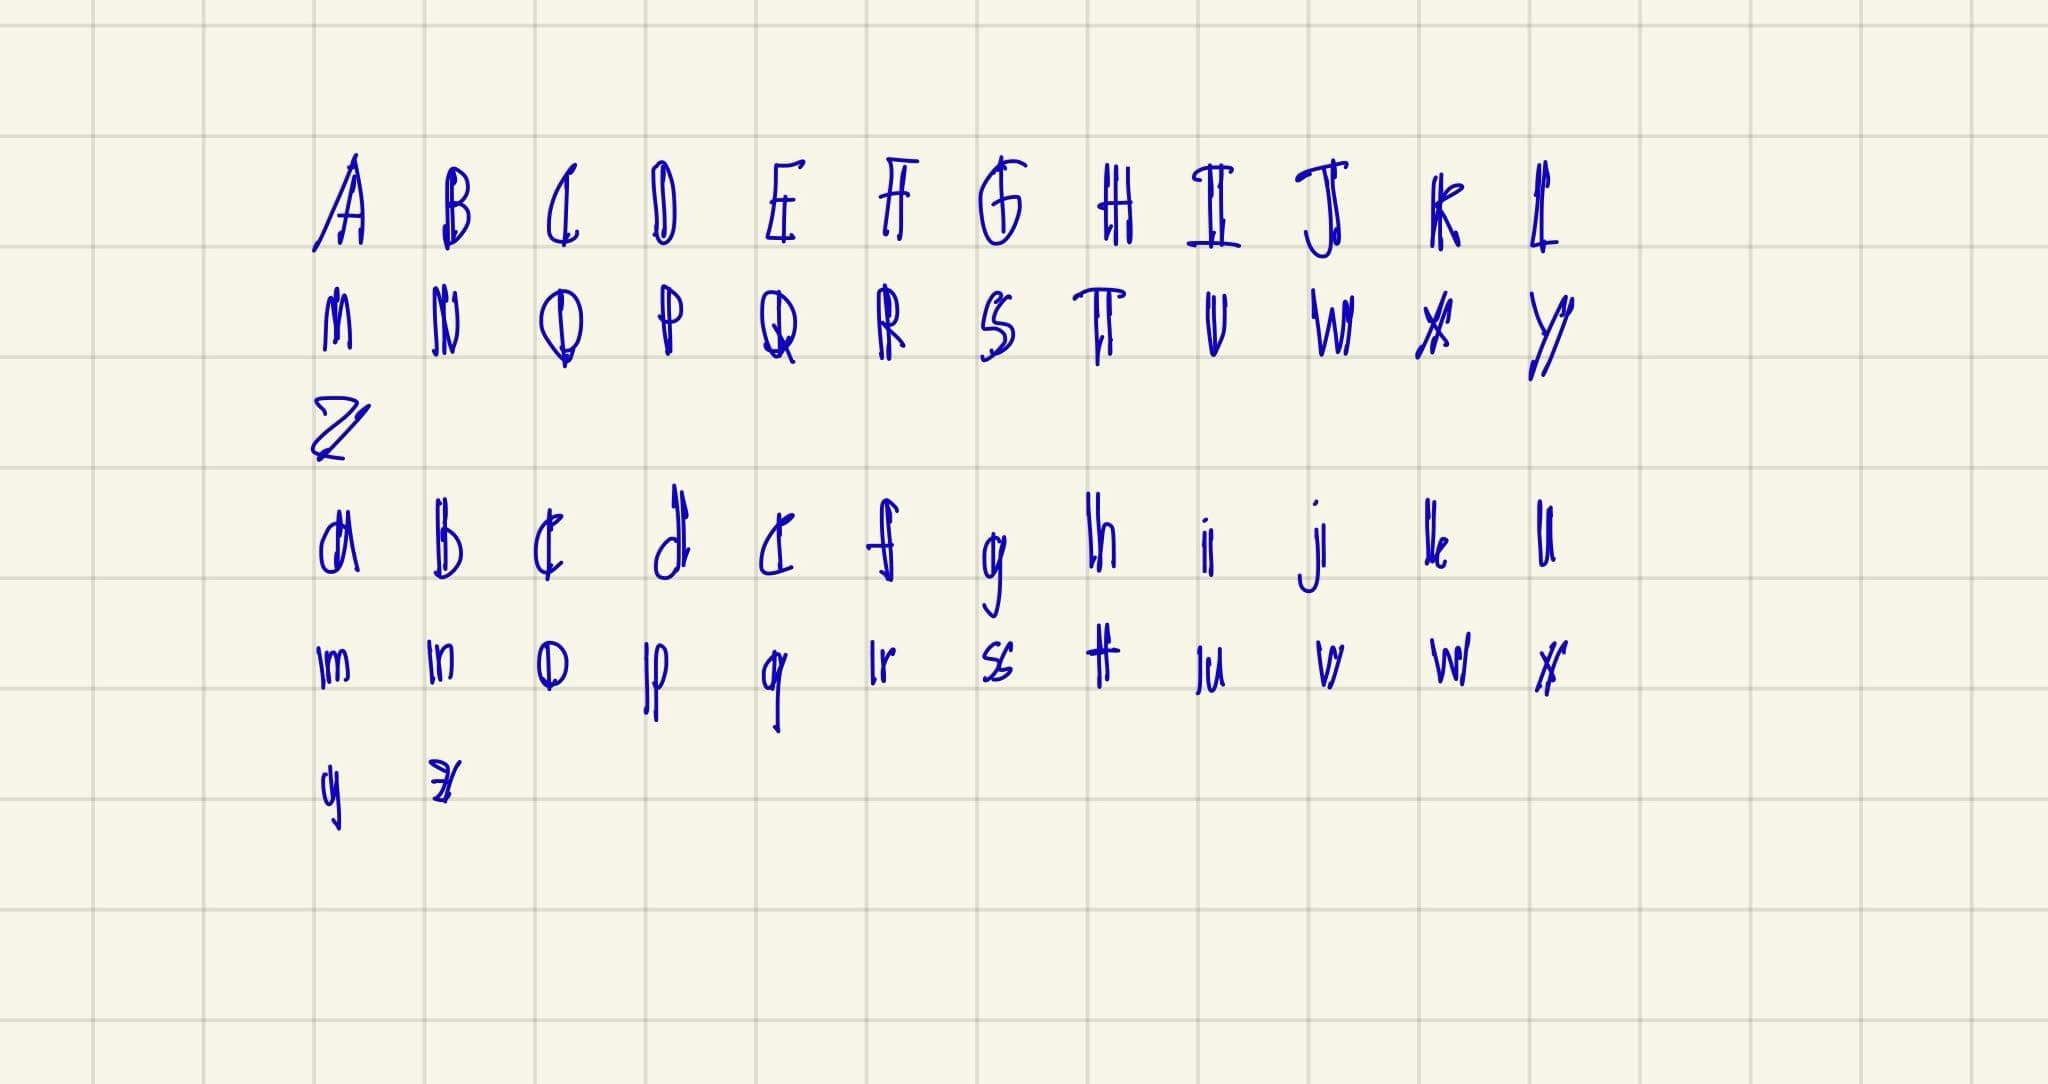 A B C D E F G H I J K L
M N O P Q R S T U W X Y
Z
a b c d e f g h i j k l
m n o p q r s t u v w x
y z